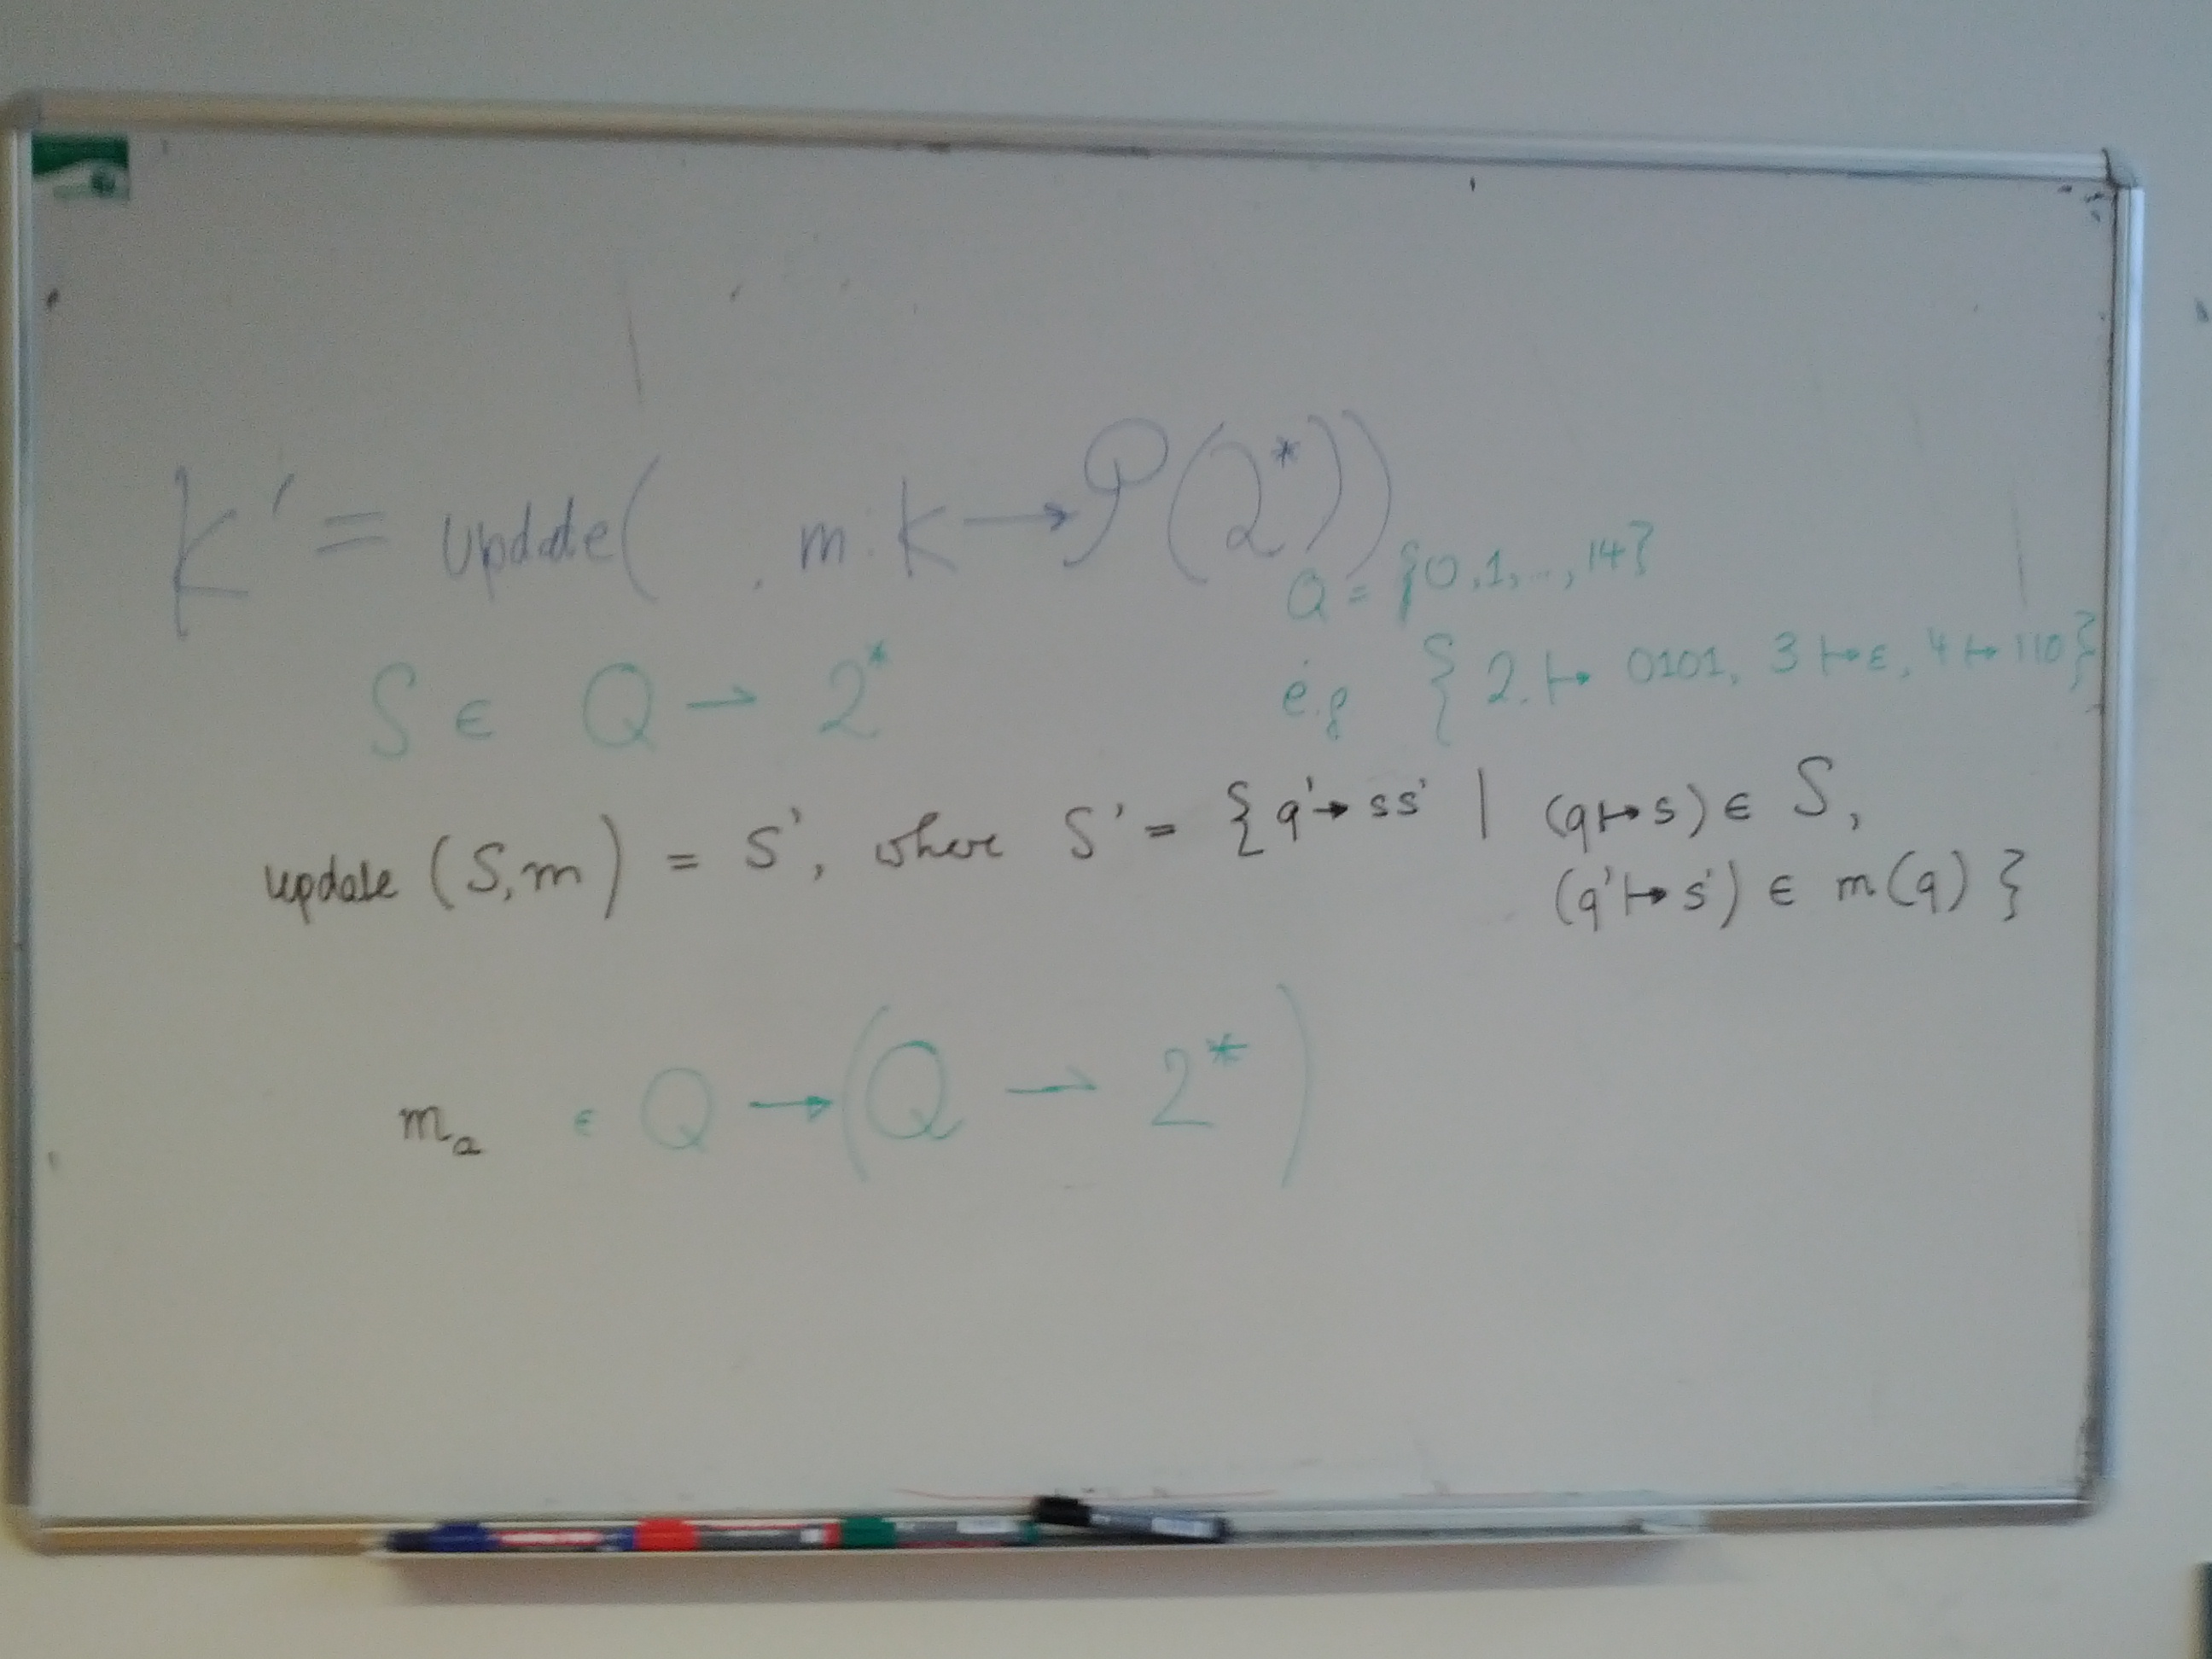 K' = update( , m : K → 𝒫(2*))
Q = {0,1,..,14}
S ∈ Q ⇀ 2*
e.g { 2 ↦ 0101, 3 ↦ ε, 4 ↦ 110}
update (S,m) = S', where S' = { q' ↦ ss' | (q ↦ s) ∈ S,
(q' ↦ s') ∈ m(q) }
m_a ∈ Q → (Q ⇀ 2*)